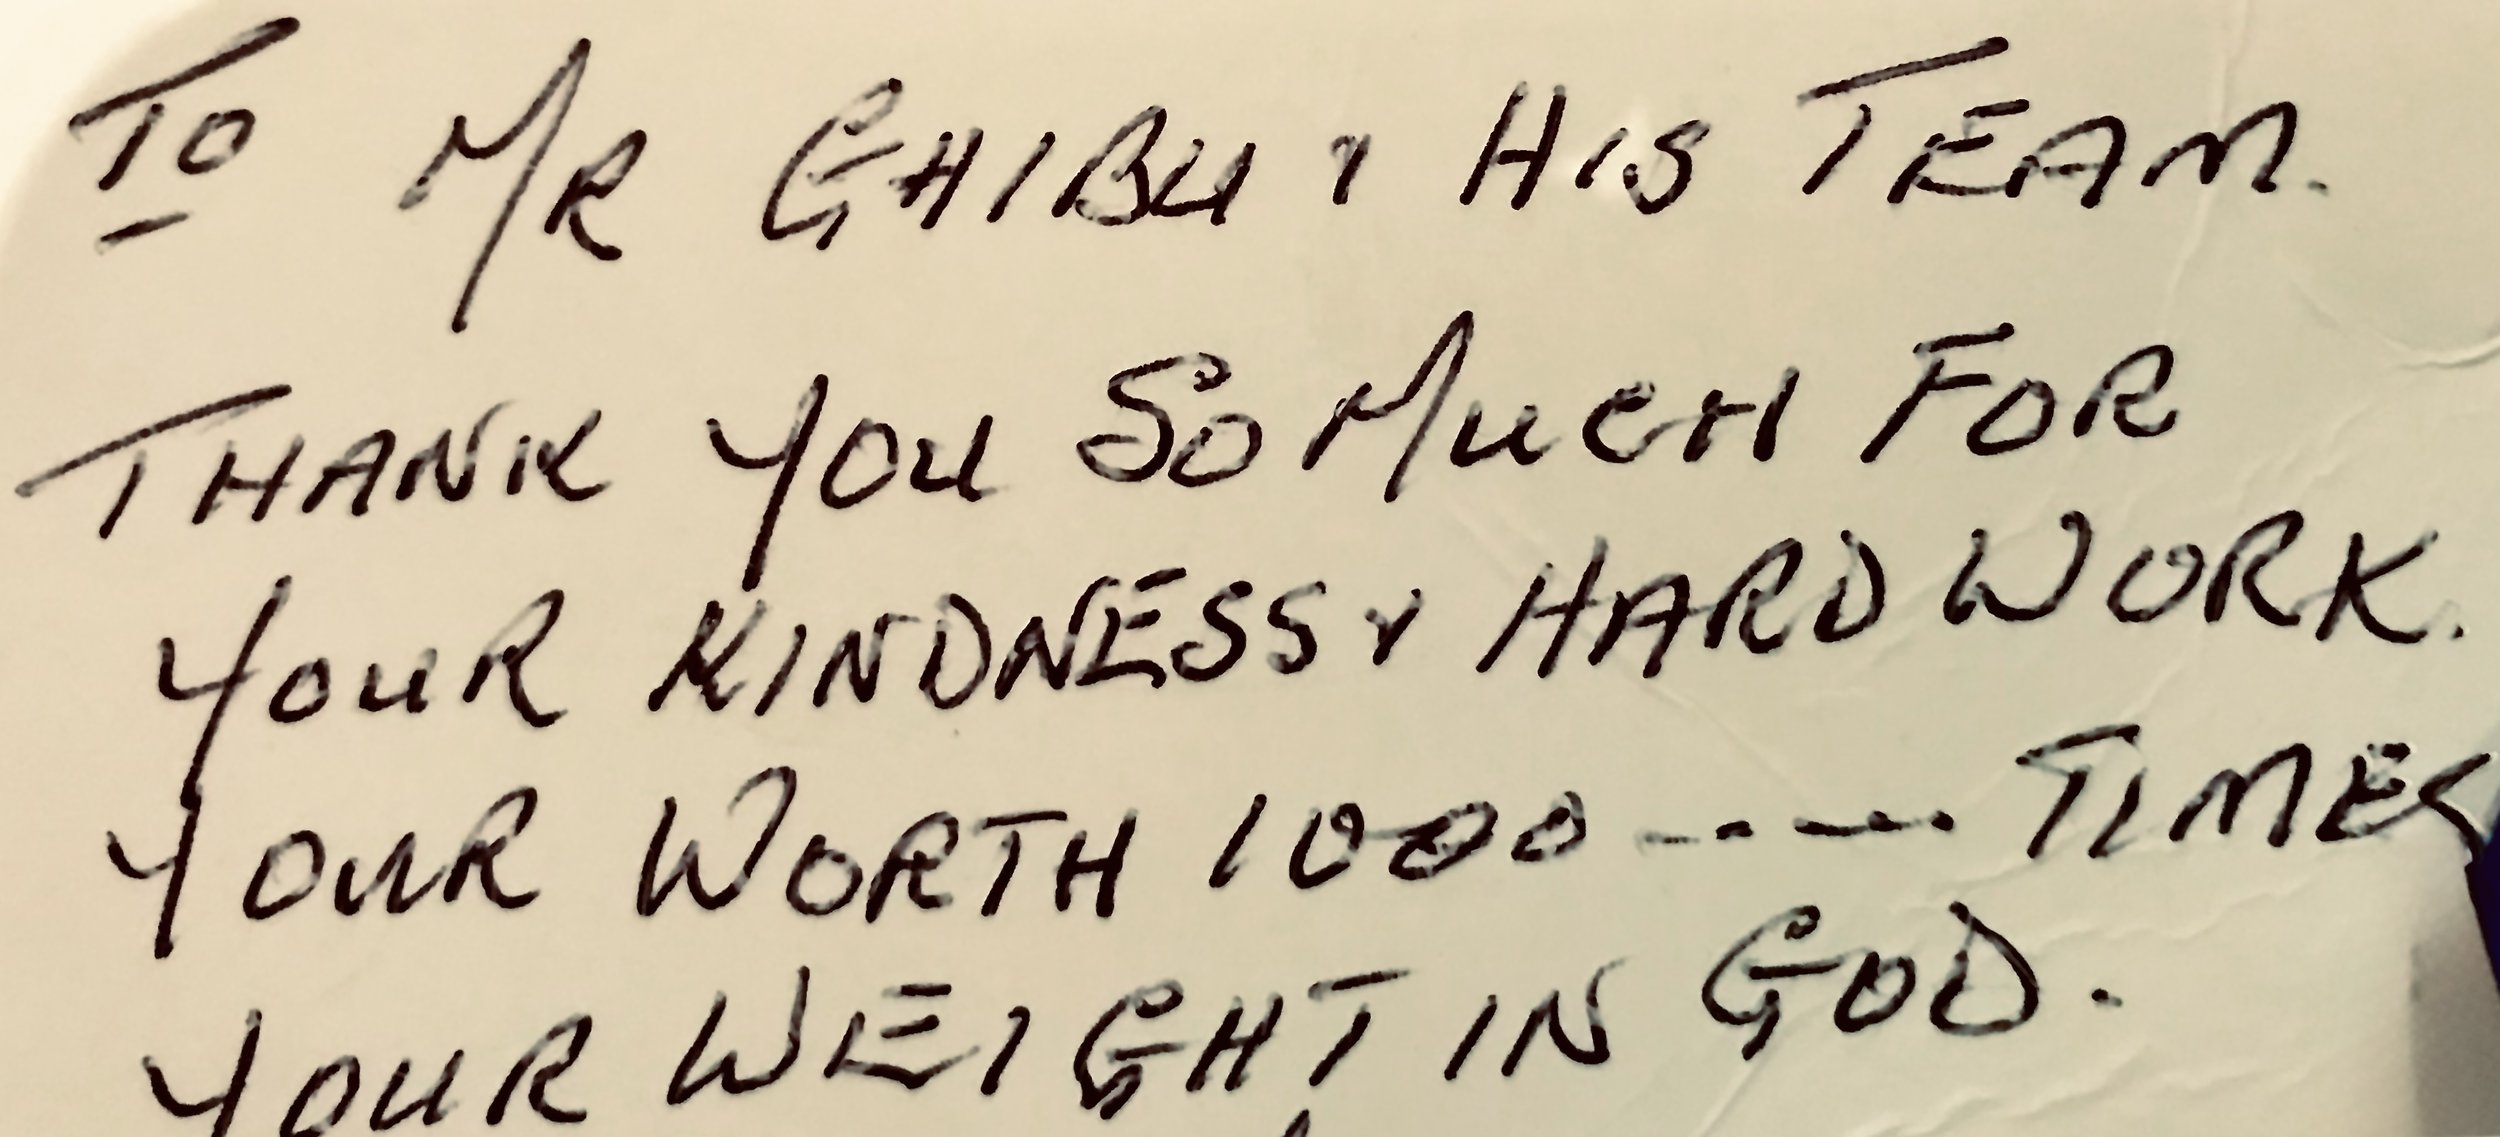 TO MR GHIBU & HIS TEAM.
THANK YOU SO MUCH FOR
YOUR KINDNESS & HARD WORK.
YOUR WORTH 1000 ----- TIMES
YOUR WEIGHT IN GOD.